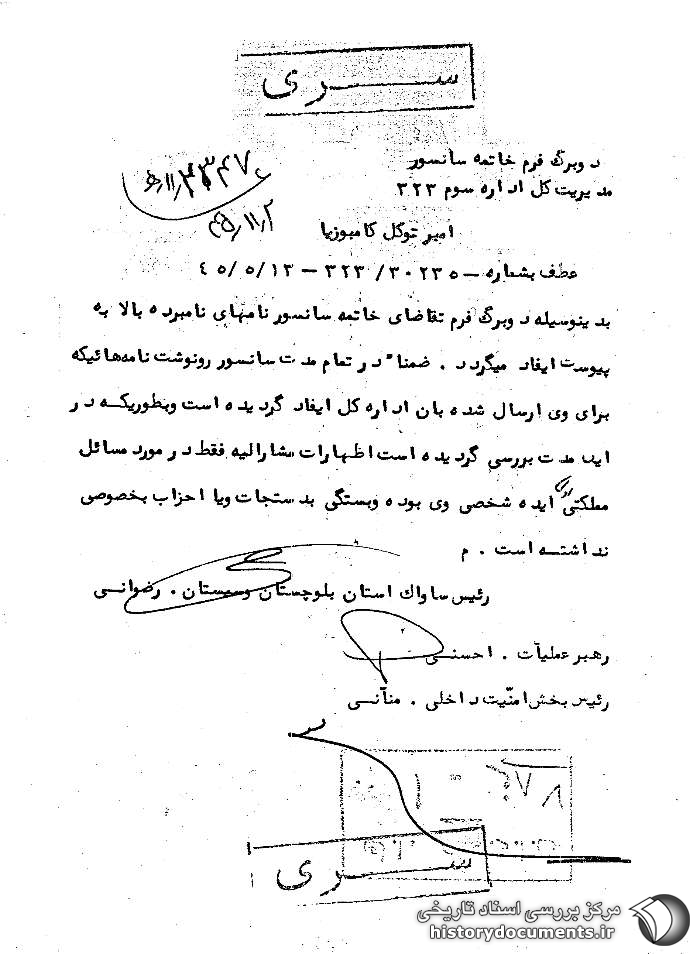 سری
دوبرگ فرم خاتمه سانسور
مدیریت کل اداره سوم ۳۲۳
امیر توکل کامبوزیا
۴۵/۱۱/۲
عطف بشماره – ۳۰۲۳۵/ ۳۲۳ – ۴۵/۵/۱۳
بدینوسیله دوبرگ فرم تقاضای خاتمه سانسور نامهای نامبرده بالا به
پیوست ایفاد میگردد . ضمنا" در تمام مدت سانسور رونوشت نامه‌هائیکه
برای وی ارسال شده بان اداره کل ایفاد گردیده است وبطوریکه در
این مدت بررسی گردیده است اظهارات مشارالیه فقط در مورد مسائل
مملکتی ایده شخصی وی بوده وبستگی بدستجات ویا احزاب بخصوصی
نداشته است . م
رئیس ساواک استان بلوچستان وسیستان . رضوانی
رهبر عملیات . احسنی
رئیس بخش امنیت داخلی . منآنی
سری
مرکز بررسی اسناد تاریخی
historydocuments.ir